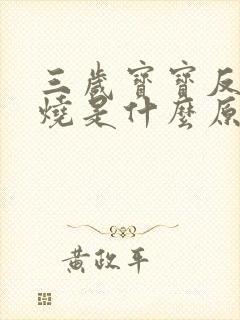 三歲寶寶反
燒是什麼原
黃政平